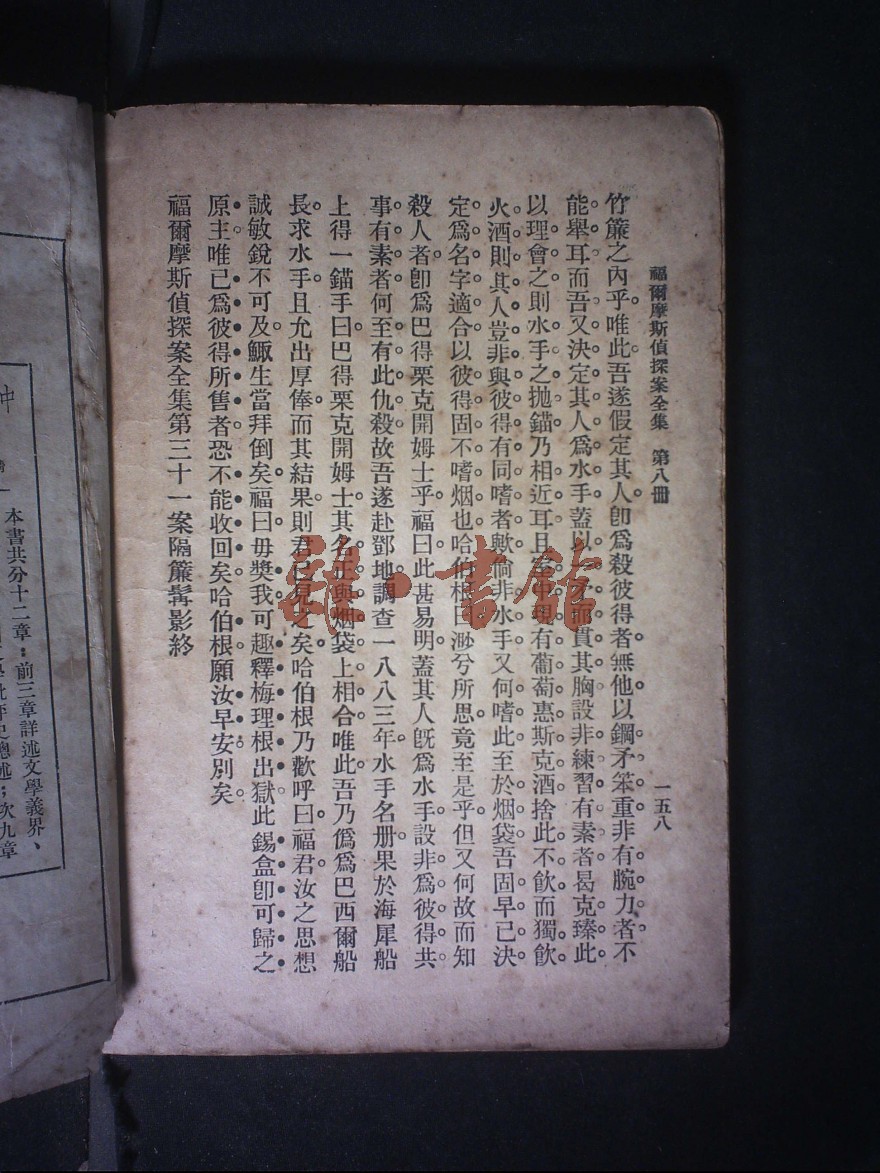 福爾摩斯偵探案全集 第八冊 一五八
竹簾之內乎唯此吾遂假定其人卽爲殺彼得者無他以鋼矛笨重非有腕力者不
能舉耳而吾又決定其人爲水手蓋以矛而貫其胸設非練習有素者曷克臻此
以理會之則水手之拋錨乃相近耳且室中現有葡萄惠斯克酒捨此不飮而獨飮
火酒則其人豈非與彼得有同嗜者歟倘非水手又何嗜此至於烟袋吾固早已決
定爲名字適合以彼得固不嗜烟也哈伯根曰渺兮所思竟至是乎但又何故而知
殺人者卽爲巴得栗克開姆士乎福曰此甚易明蓋其人旣爲水手設非爲彼得共
事有素者何至有此仇殺故吾遂赴鄧地調查一八八三年水手名册果於海犀船
上得一錨手曰巴得栗克開姆士其名正與烟袋上相合唯此吾乃僞爲巴西爾船
長求水手且允出厚俸而其結果則君已見之矣哈伯根乃歡呼曰福君汝之思想
誠敏銳不可及鯫生當拜倒矣福曰毋獎我可趣釋梅理根出獄此錫盒卽可歸之
原主唯已爲彼得所售者恐不能收回矣哈伯根願汝早安別矣
福爾摩斯偵探案全集第三十一案隔簾髯影終
本書共分十二章：前三章詳述文學義界、
雜·書館